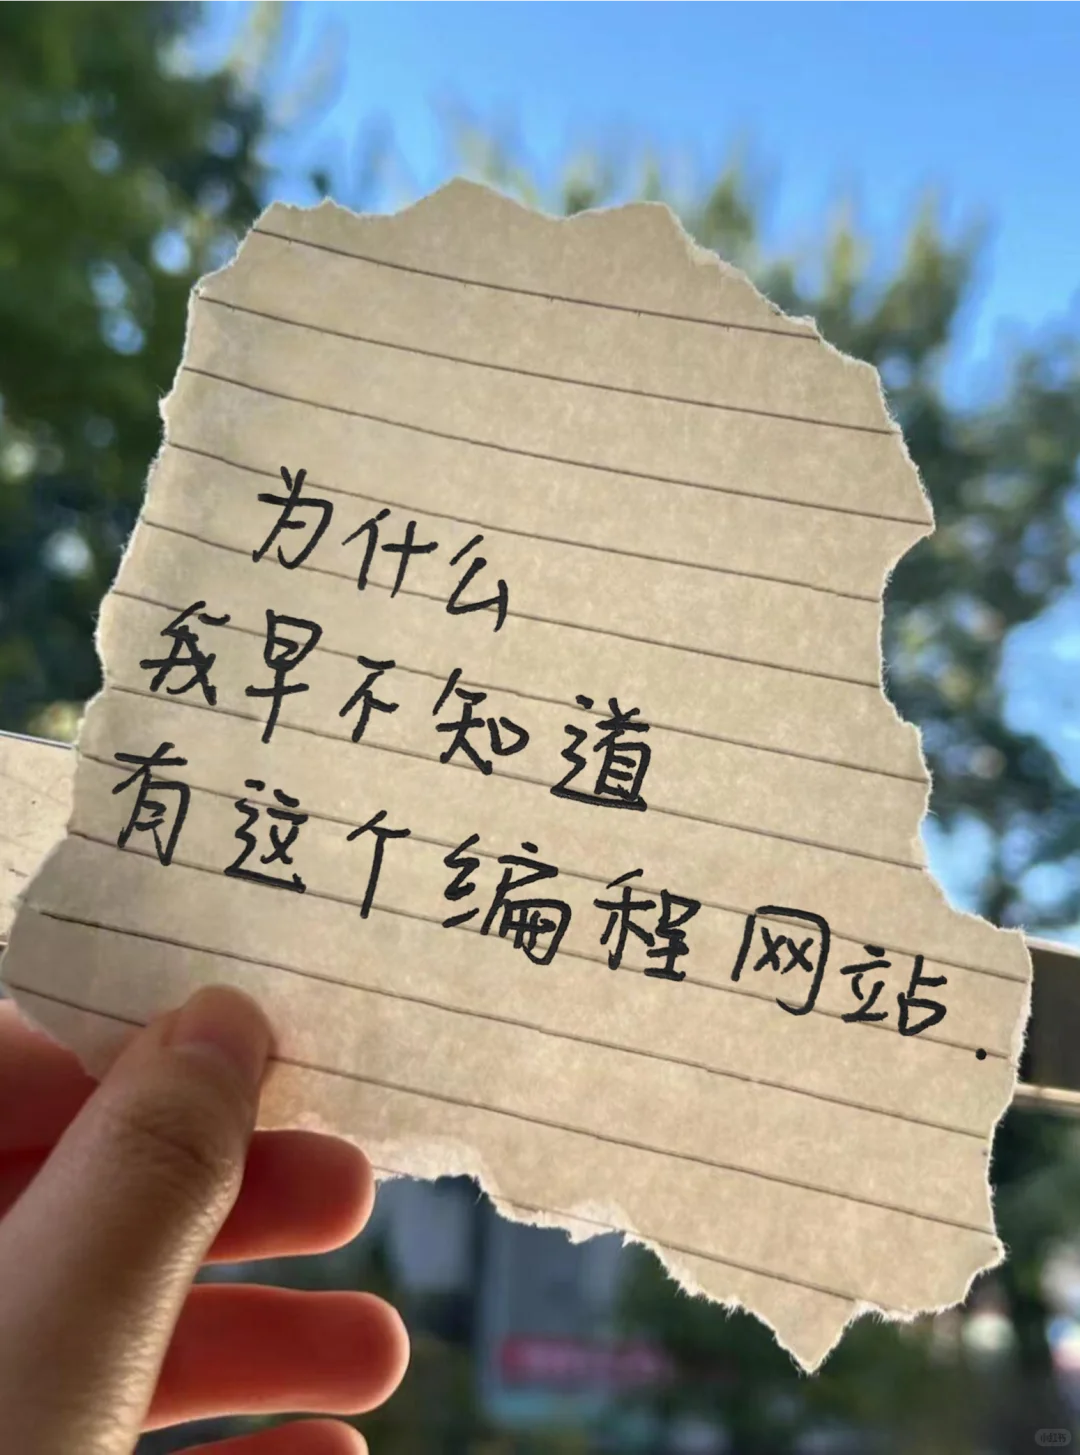 为什么
我早不知道
有这个编程网站.